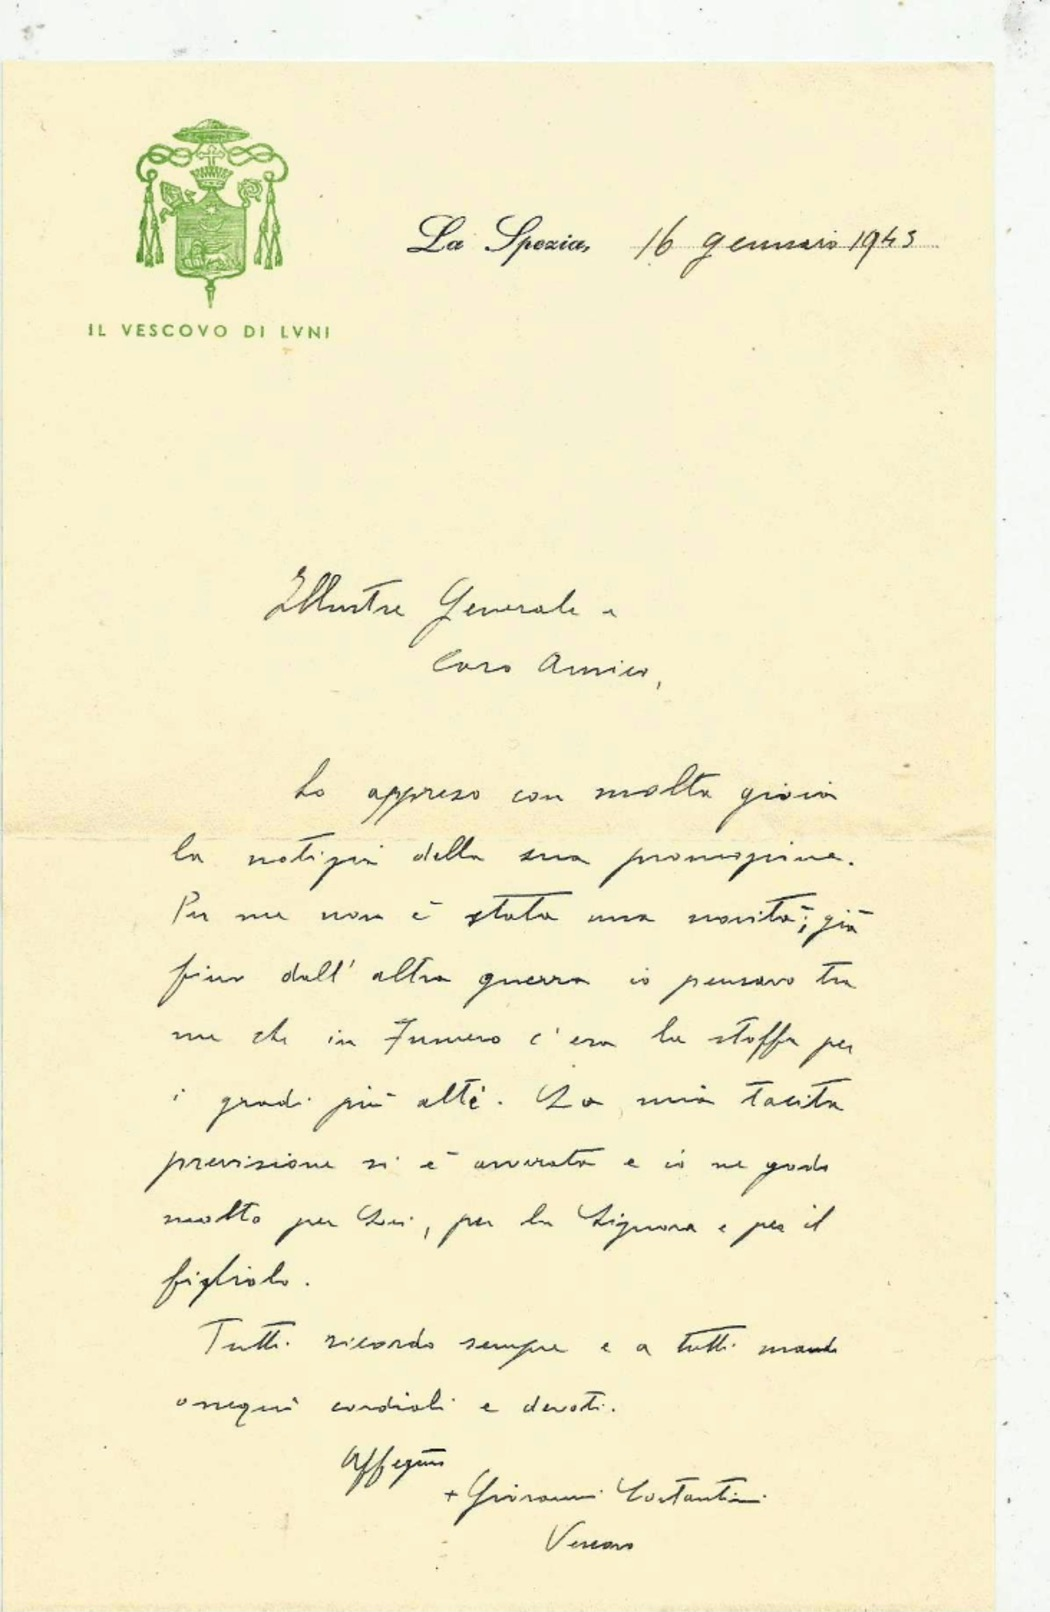 La Spezia, 16 gennaio 1943
IL VESCOVO DI LVNI
Illustre Generale e
Caro Amico,
ho appreso con molta gioia
la notizia della sua promozione.
Per me non è stata una novità; già
fino dall'altra guerra io pensavo tra
me che in Fumero c'era la stoffa per
i gradi più alti. La mia tacita
previsione si è avverata e io ne godo
molto per Lei, per la Signora e per il
figliolo.
Tutti ricordo sempre e a tutti mando
ossequi cordiali e devoti.
Affezmo
+ Giovanni Costantini
Vescovo